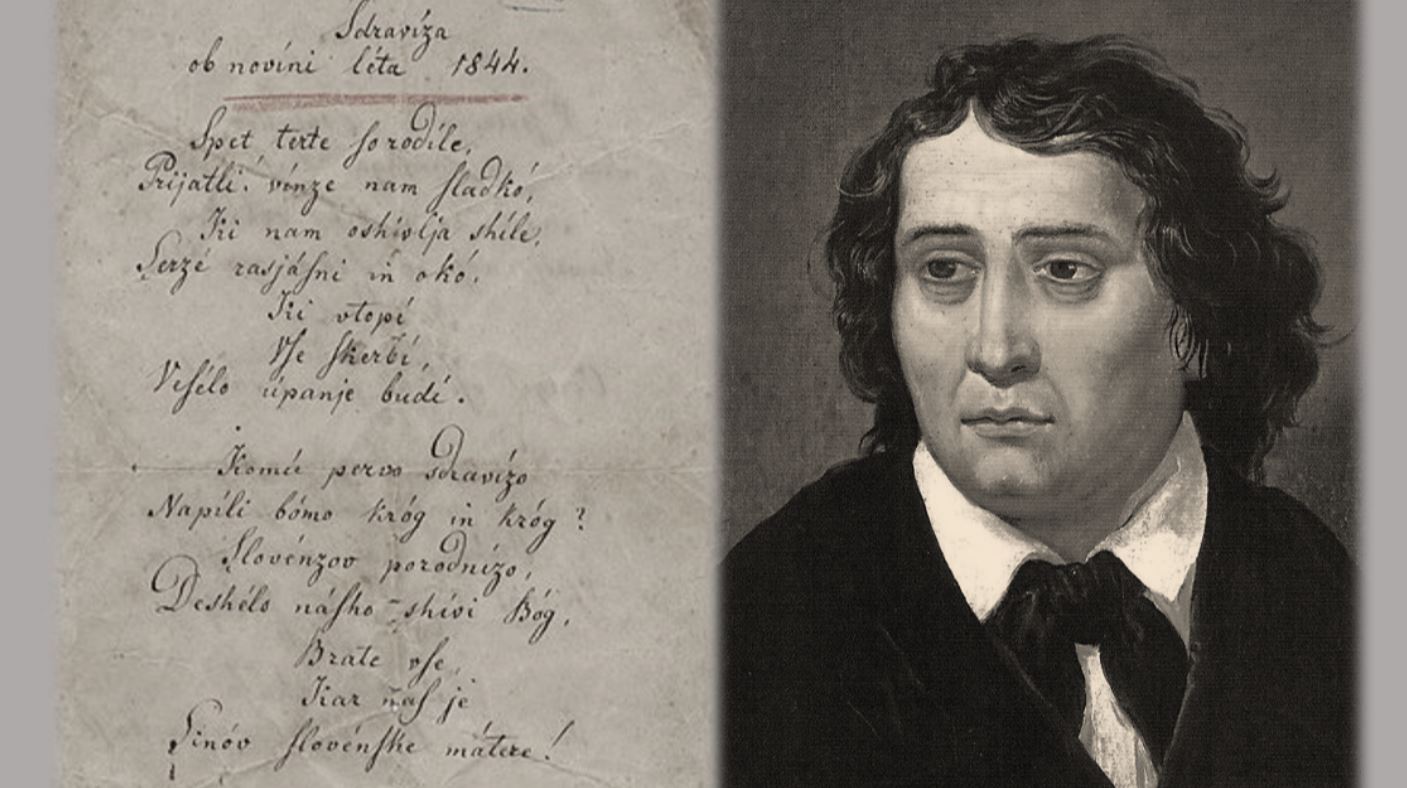 Sdravíza
ob novíni léta 1844.
Spet terte ſo rodíle,
Prijatli! vínze nam ſladkó,
Ki nam oshivlja shile,
Serzé rasjáſni in okó,
Ki vtopí
Vſe ſkerbí,
Veſélo úpanje budí.
Komú pervo sdravízo
Napíli bómo króg in króg?
Slovénzov porodnízo,
Deshélo náſho shívi Bóg,
Brate vſe,
Kar naſ je
Sinóv ſlovénſke mátere!